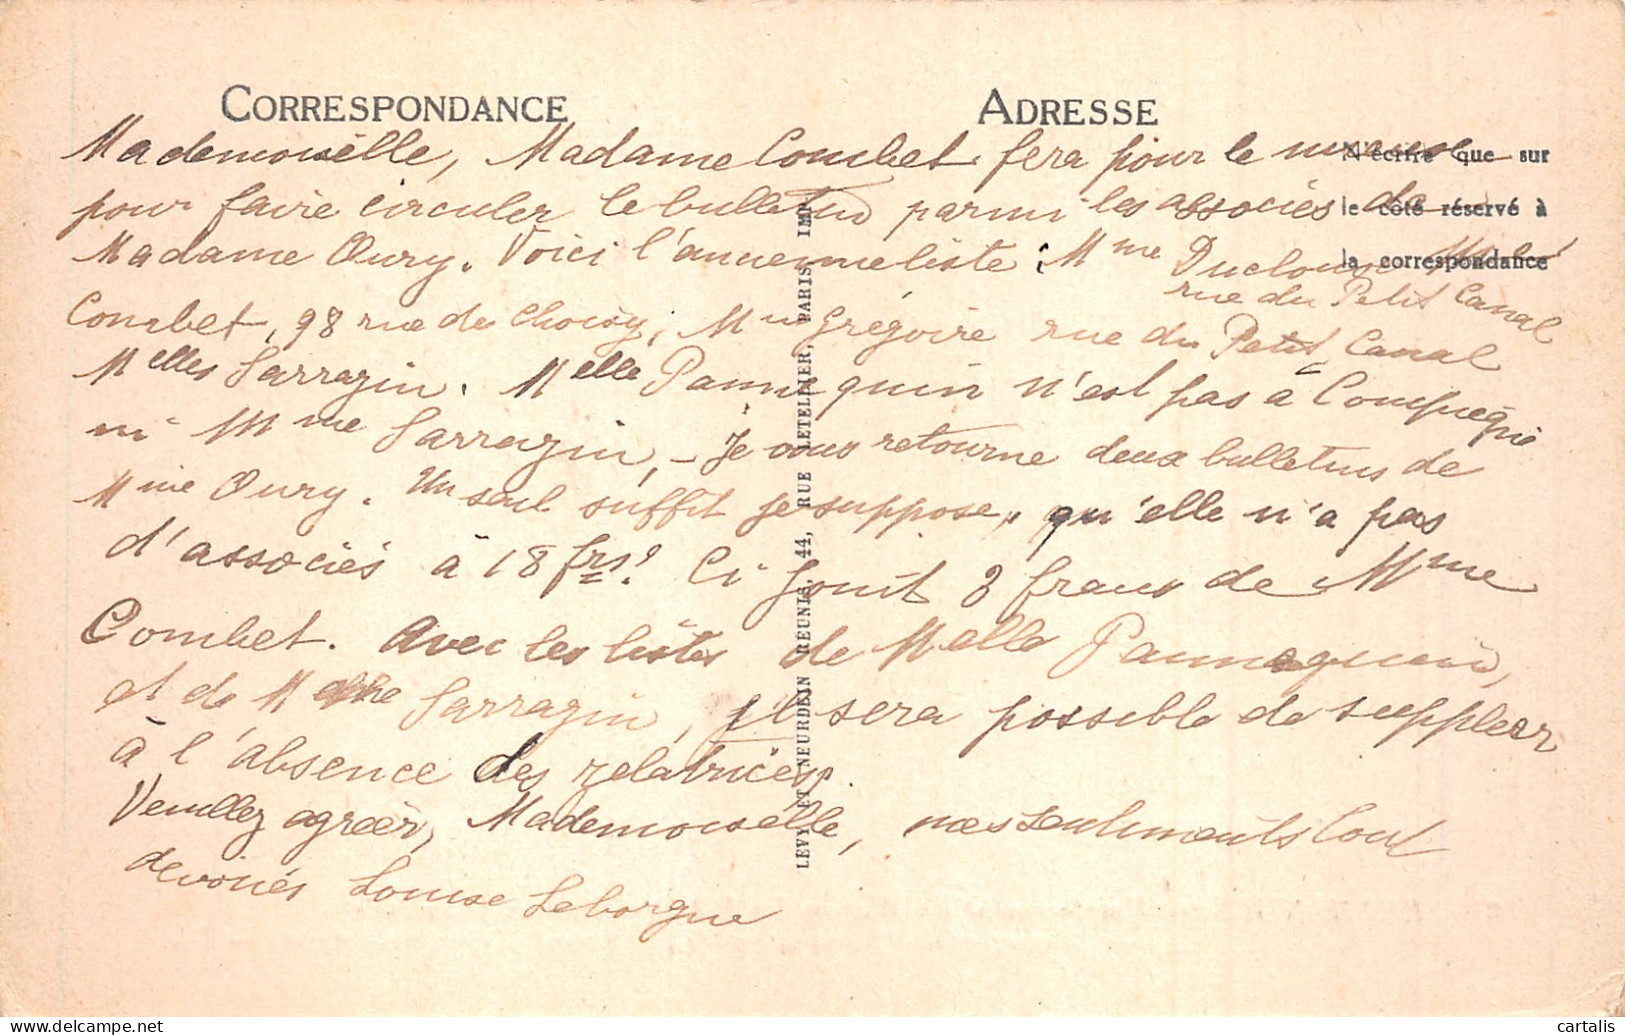 CORRESPONDANCE
ADRESSE
N'écrire que sur
le côté réservé à
la correspondance
Mademoiselle, Madame Combet fera pour le mieux
pour faire circuler le bulletin parmi les associés de
Madame Oury. Voici l'ancienne liste : Mme
rue du Petit Canal
Combet, 98 rue de Choisy, Mme Grégoire rue du Petit Canal
Melles Sarrazin. Melle Pannequin n'est pas à Compiègne
ni Mme Sarrazin, - Je vous retourne deux bulletins de
Mme Oury. Un seul suffit je suppose, qu'elle n'a pas
d'associés à 18 frs. Ci joint 3 francs de Mme
Combet. Avec les listes de Melle Pannequin,
et de Sarrazin, il sera possible de suppléer
à l'absence des zélatrices.
Veuillez agréer, Mademoiselle, mes sentiments tout
dévoués Louise Leborgne
LEVY ET NEURDEIN RÉUNIS, 44, RUE LETELLIER, PARIS IMP.
cartalis
delcampe.net